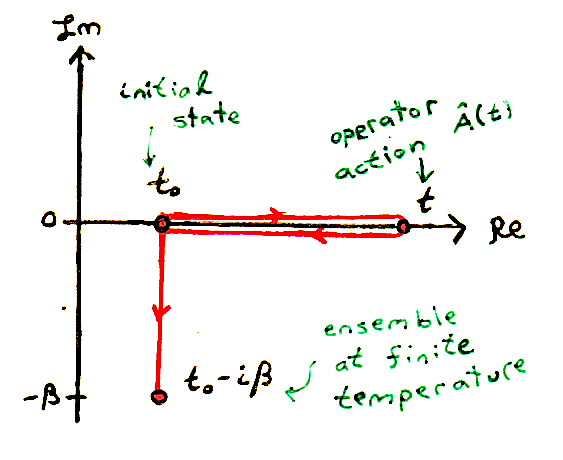 Im
initial
state
operator Â(t)
action
t₀
t
0
Re
ensemble
at finite
temperature
t₀-iβ
-β